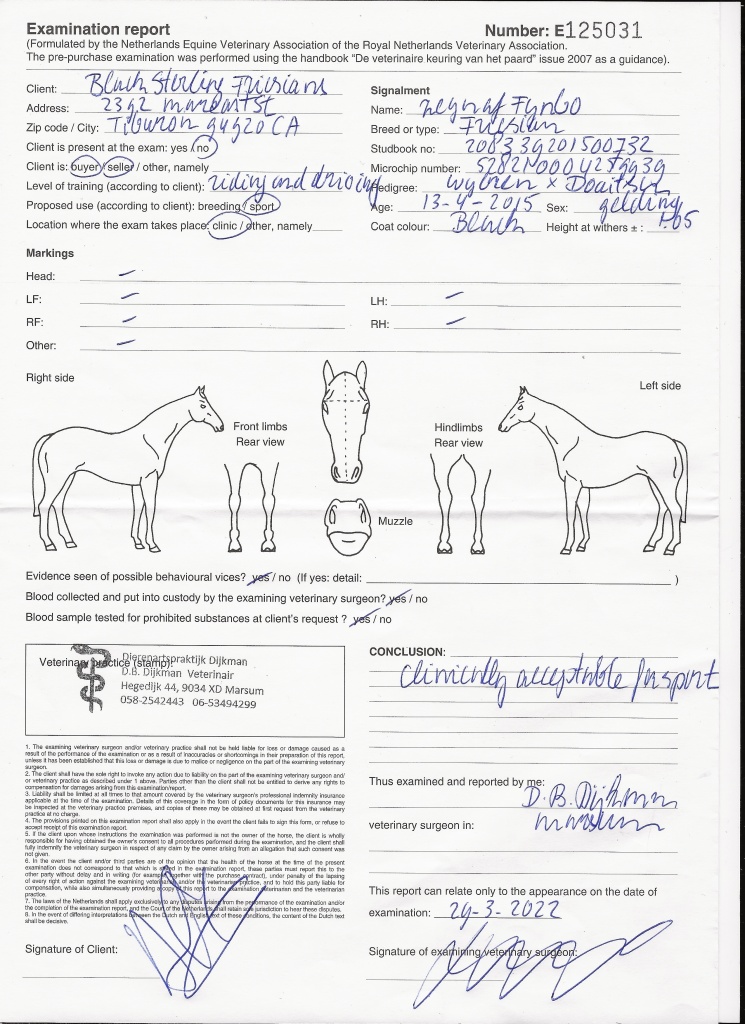 Examination report
Number: E125031
(Formulated by the Netherlands Equine Veterinary Association of the Royal Netherlands Veterinary Association.
The pre-purchase examination was performed using the handbook “De veterinaire keuring van het paard” issue 2007 as a guidance).
Client: Black Sterling Friesians
Address: 2392 mar east St
Zip code / City: Tiburon 94920 CA
Client is present at the exam: yes / no
Client is: buyer / seller / other, namely
Level of training (according to client): riding and driving
Proposed use (according to client): breeding / sport
Location where the exam takes place: clinic / other, namely
Signalment
Name: Fynbo
Breed or type: Friesian
Studbook no: 208339201500732
Microchip number:
Pedigree: x
Age: 13-4-2015 Sex: gelding
Coat colour: Black Height at withers ± : 1.65
Markings
Head: –
LF: – LH: –
RF: – RH: –
Other: –
Right side
Left side
Front limbs
Rear view
Hindlimbs
Rear view
Muzzle
Evidence seen of possible behavioural vices? yes / no (If yes: detail: )
Blood collected and put into custody by the examining veterinary surgeon? yes / no
Blood sample tested for prohibited substances at client's request ? yes / no
Veterinary practice (stamp):
Dierenartspraktijk Dijkman
D.B. Dijkman Veterinair
Hegedijk 44, 9034 XD Marsum
058-2542443 06-53494299
CONCLUSION:
Clinically acceptable for sport
1. The examining veterinary surgeon and/or veterinary practice shall not be held liable for loss or damage caused as a
result of the performance of the examination or as a result of inaccuracies or shortcomings in their preparation of this report,
unless it has been established that this loss or damage is due to malice or negligence on the part of the examining veterinary
surgeon.
2. The client shall have the sole right to invoke any action due to liability on the part of the examining veterinary surgeon and/
or veterinary practice as described under 1 above. Parties other than the client shall not be entitled to derive any rights to
compensation for damages arising from this examination/report.
3. Liability shall be limited at all times to that amount covered by the veterinary surgeon's professional indemnity insurance
applicable at the time of the examination. Details of this coverage in the form of policy documents for this insurance may
be inspected at the veterinary practice premises, and copies of these may be obtained at first request from the veterinary
practice at no charge.
4. The provisions printed on this examination report shall also apply in the event the client fails to sign this form, or refuse to
accept receipt of this examination report.
5. If the client upon whose instructions the examination was performed is not the owner of the horse, the client is wholly
responsible for having obtained the owner's consent to all procedures performed during the examination, and the client shall
fully indemnify the veterinary surgeon in respect of any claim by the owner arising from an allegation that such consent was
not given.
6. In the event the client and/or third parties are of the opinion that the health of the horse at the time of the present
examination does not correspond to that which is stated in the examination report, these parties must report this to the
other party without delay and in writing (for example together with the purchase contract), under penalty of the lapsing
of every right of action against the examining veterinarian and/or the veterinary practice, and to hold this party liable for
compensation, while also simultaneously providing access of this report to the examination veterinarian and the veterinary
practice.
7. The laws of the Netherlands shall apply exclusively to any disputes arising from the performance of the examination and/or
the completion of the examination report, and the Court of the Netherlands shall retain sole jurisdiction to hear these disputes.
8. In the event of differing interpretations between the Dutch and English text of these conditions, the content of the Dutch text
shall be decisive.
Thus examined and reported by me:
D.B. Dijkman
veterinary surgeon in: marsum
This report can relate only to the appearance on the date of
examination: 29-3-2022
Signature of Client:
Signature of examining veterinary surgeon: